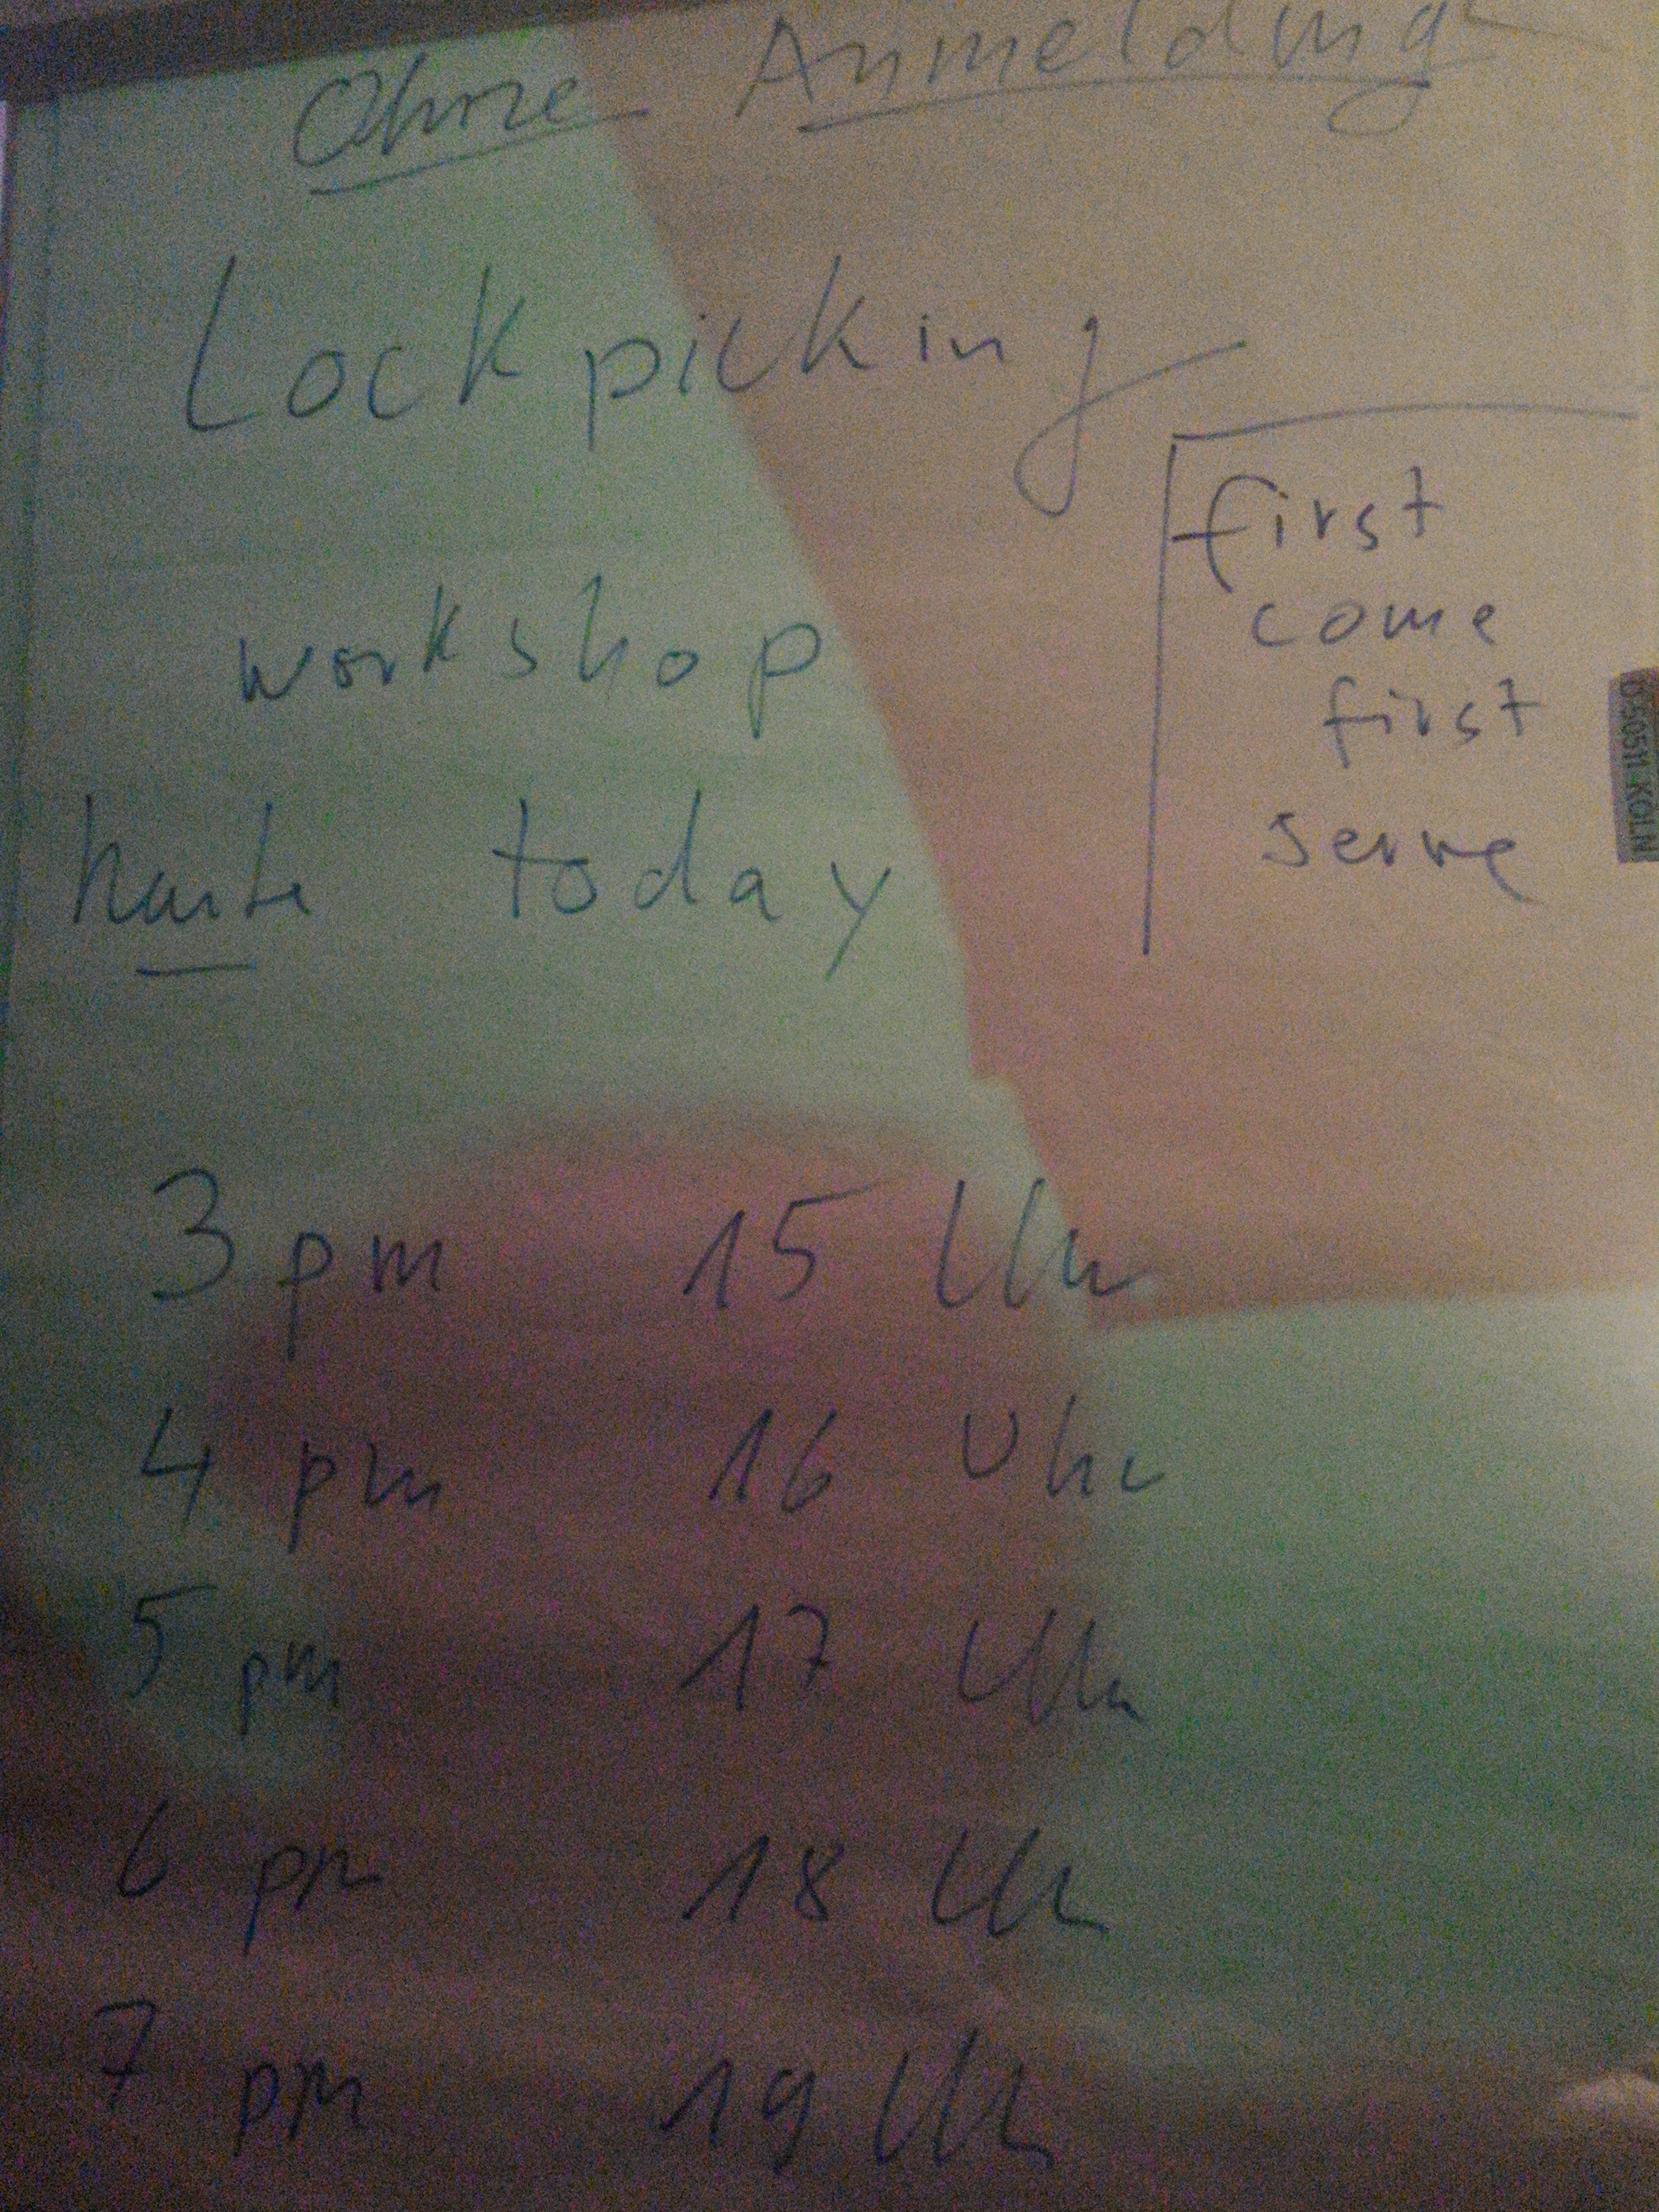 Ohne Anmeldung
Lockpicking
workshop
heute today
first
come
first
serve
3 pm 15 Uhr
4 pm 16 Uhr
5 pm 17 Uhr
6 pm 18 Uhr
7 pm 19 Uhr